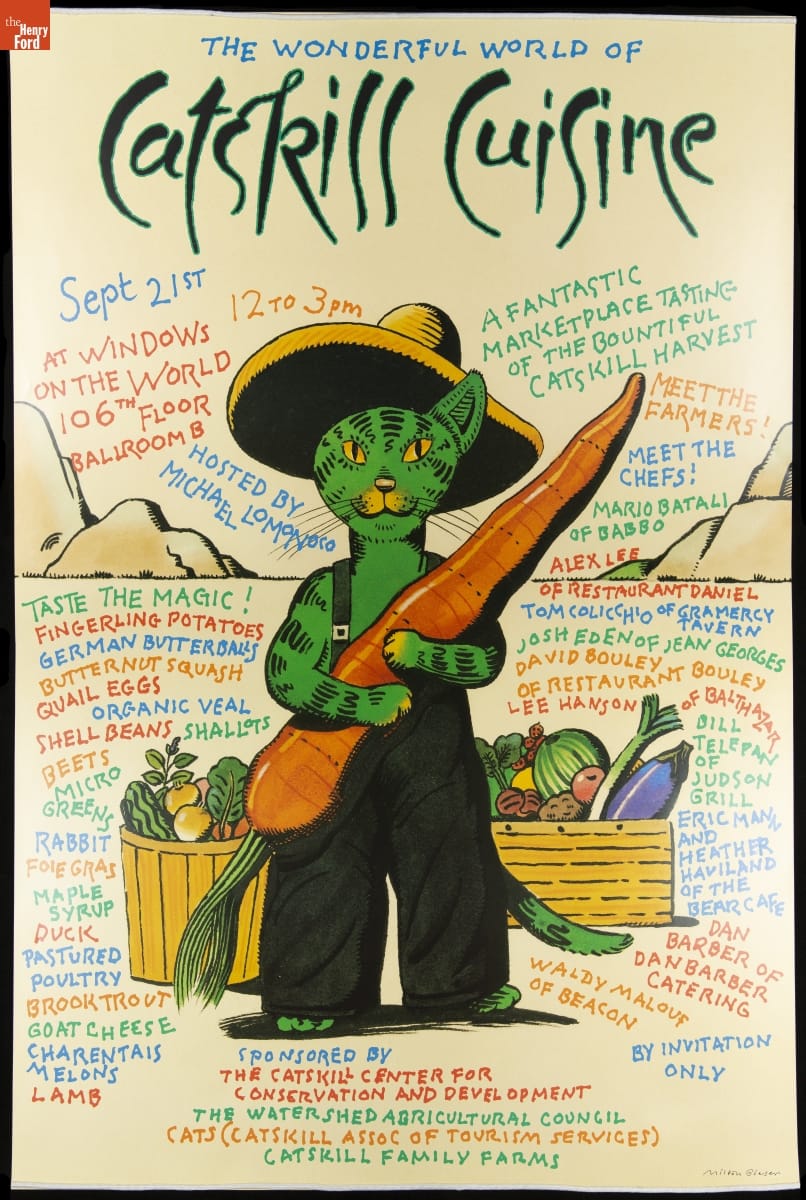 the
Henry
Ford
THE WONDERFUL WORLD OF
Catskill Cuisine
Sept 21ST
12 TO 3pm
AT WINDOWS
ON THE WORLD
106TH FLOOR
BALLROOM B
HOSTED BY
MICHAEL LOMONOCO
A FANTASTIC
MARKETPLACE TASTING
OF THE BOUNTIFUL
CATSKILL HARVEST
MEET THE
FARMERS!
MEET THE
CHEFS!
MARIO BATALI
OF BABBO
ALEX LEE
OF RESTAURANT DANIEL
TOM COLICCHIO OF GRAMERCY
TAVERN
JOSH EDEN OF JEAN GEORGES
DAVID BOULEY
OF RESTAURANT BOULEY
LEE HANSON
OF BALTHAZAR
BILL
TELEPAN
OF
JUDSON
GRILL
ERIC MANN
AND
HEATHER
HAVILAND
OF THE
BEAR CAFE
DAN
BARBER OF
DAN BARBER
CATERING
WALDY MALOUF
OF BEACON
BY INVITATION
ONLY
TASTE THE MAGIC!
FINGERLING POTATOES
GERMAN BUTTERBALLS
BUTTERNUT SQUASH
QUAIL EGGS
ORGANIC VEAL
SHELL BEANS
SHALLOTS
BEETS
MICRO
GREENS
RABBIT
FOIE GRAS
MAPLE
SYRUP
DUCK
PASTURED
POULTRY
BROOK TROUT
GOAT CHEESE
CHARENTAIS
MELONS
LAMB
SPONSORED BY
THE CATSKILL CENTER FOR
CONSERVATION AND DEVELOPMENT
THE WATERSHED AGRICULTURAL COUNCIL
CATS (CATSKILL ASSOC OF TOURISM SERVICES)
CATSKILL FAMILY FARMS
Milton Glaser